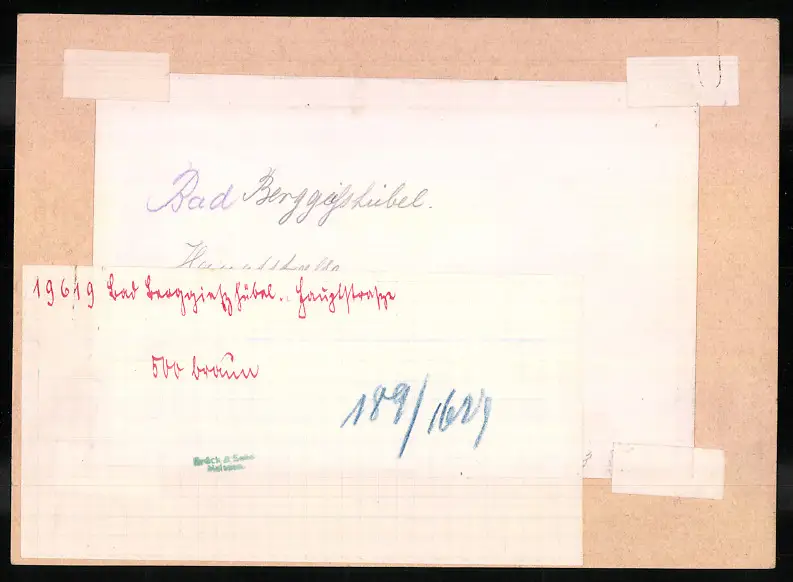 Bad Berggießhübel.
Hauptstraße
19619 Bad Berggießhübel. Hauptstraße
500 braun
189/1629
Brück & Sohn
Meissen